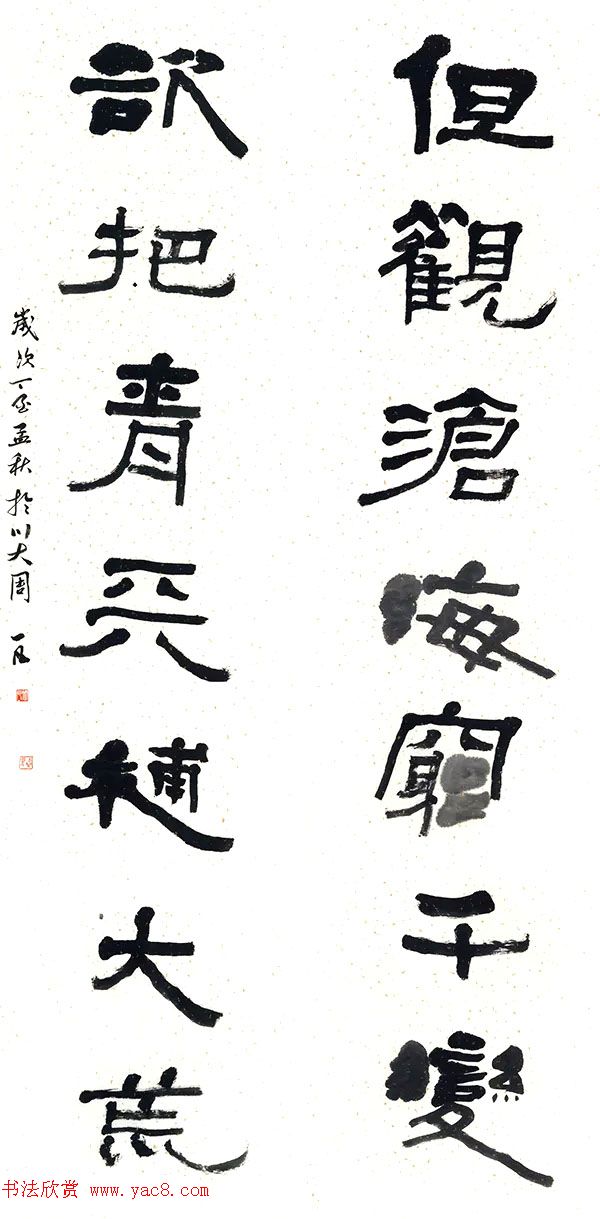 但觀滄海窮千變
把青天補大荒
歲次丁酉孟秋於川大周
书法欣赏 www.yac8.com